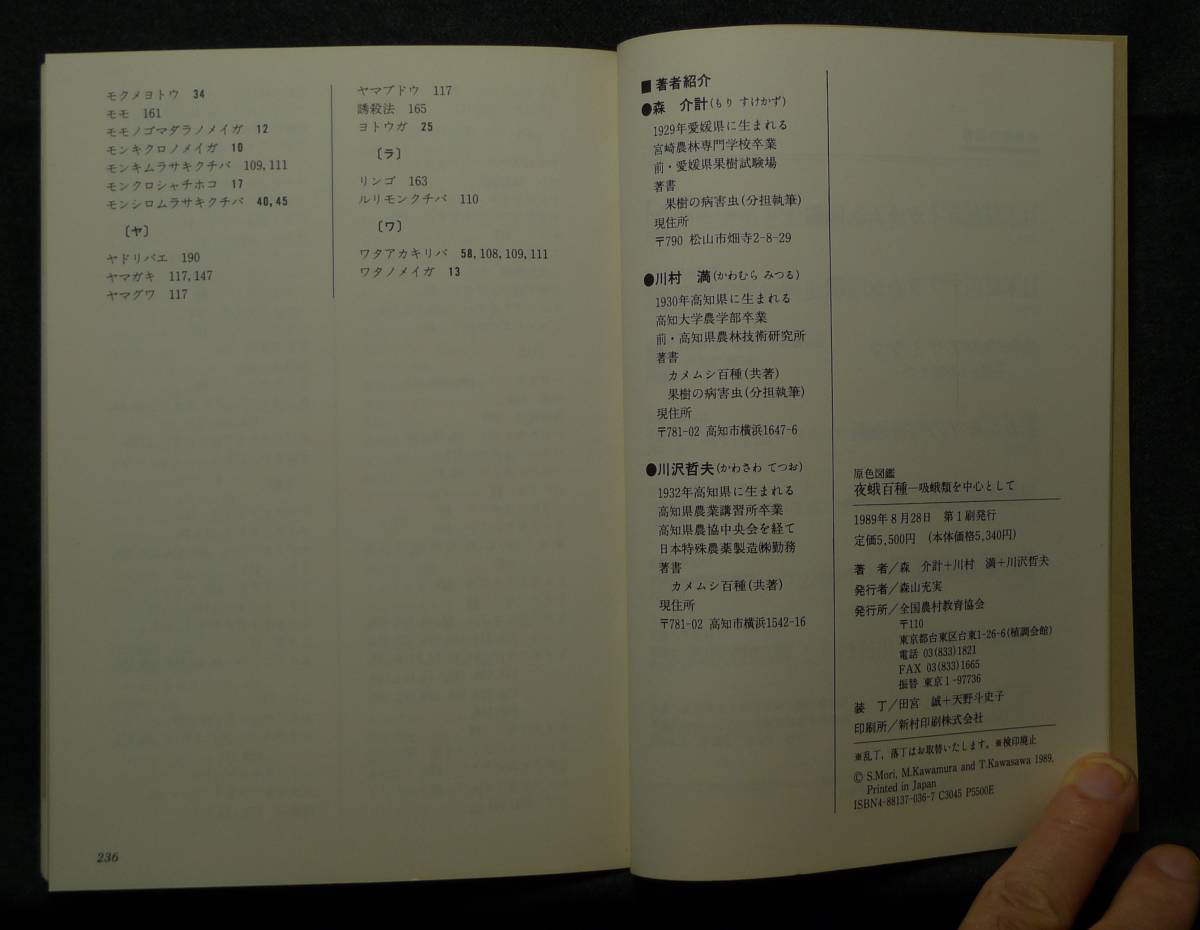 モクメヨトウ 34
モモ 161
モモノゴマダラノメイガ 12
モンキクロノメイガ 10
モンキムラサキクチバ 109,111
モンクロシャチホコ 17
モンシロムラサキクチバ 40,45
〔ヤ〕
ヤドリバエ 190
ヤマガキ 117,147
ヤマグワ 117
ヤマブドウ 117
誘殺法 165
ヨトウガ 25
〔ラ〕
リンゴ 163
ルリモンクチバ 110
〔ワ〕
ワタアカキリバ 58,108,109,111
ワタノメイガ 13
236
■著者紹介
●森 介計(もり すけかず)
1929年愛媛県に生まれる
宮崎農林専門学校卒業
前・愛媛県果樹試験場
著書
果樹の病害虫(分担執筆)
現住所
〒790 松山市畑寺2-8-29
●川村 満(かわむら みつる)
1930年高知県に生まれる
高知大学農学部卒業
前・高知県農林技術研究所
著書
カメムシ百種(共著)
果樹の病害虫(分担執筆)
現住所
〒781-02 高知市横浜1647-6
●川沢哲夫(かわさわ てつお)
1932年高知県に生まれる
高知県農業講習所卒業
高知県農協中央会を経て
日本特殊農薬製造㈱勤務
著書
カメムシ百種(共著)
現住所
〒781-02 高知市横浜1542-16
原色図鑑
夜蛾百種—吸蛾類を中心として
1989年8月28日 第1刷発行
定価5,500円 (本体価格5,340円)
著 者/森 介計+川村 満+川沢哲夫
発行者/森山充実
発行所/全国農村教育協会
〒110
東京都台東区台東1-26-6(植調会館)
電話 03(833)1821
FAX 03(833)1665
振替 東京1-97736
装 丁/田宮 誠+天野斗史子
印刷所/新村印刷株式会社
※乱丁，落丁はお取替いたします。※検印廃止
© S.Mori, M.Kawamura and T.Kawasawa 1989,
Printed in Japan
ISBN4-88137-036-7 C3045 P5500E